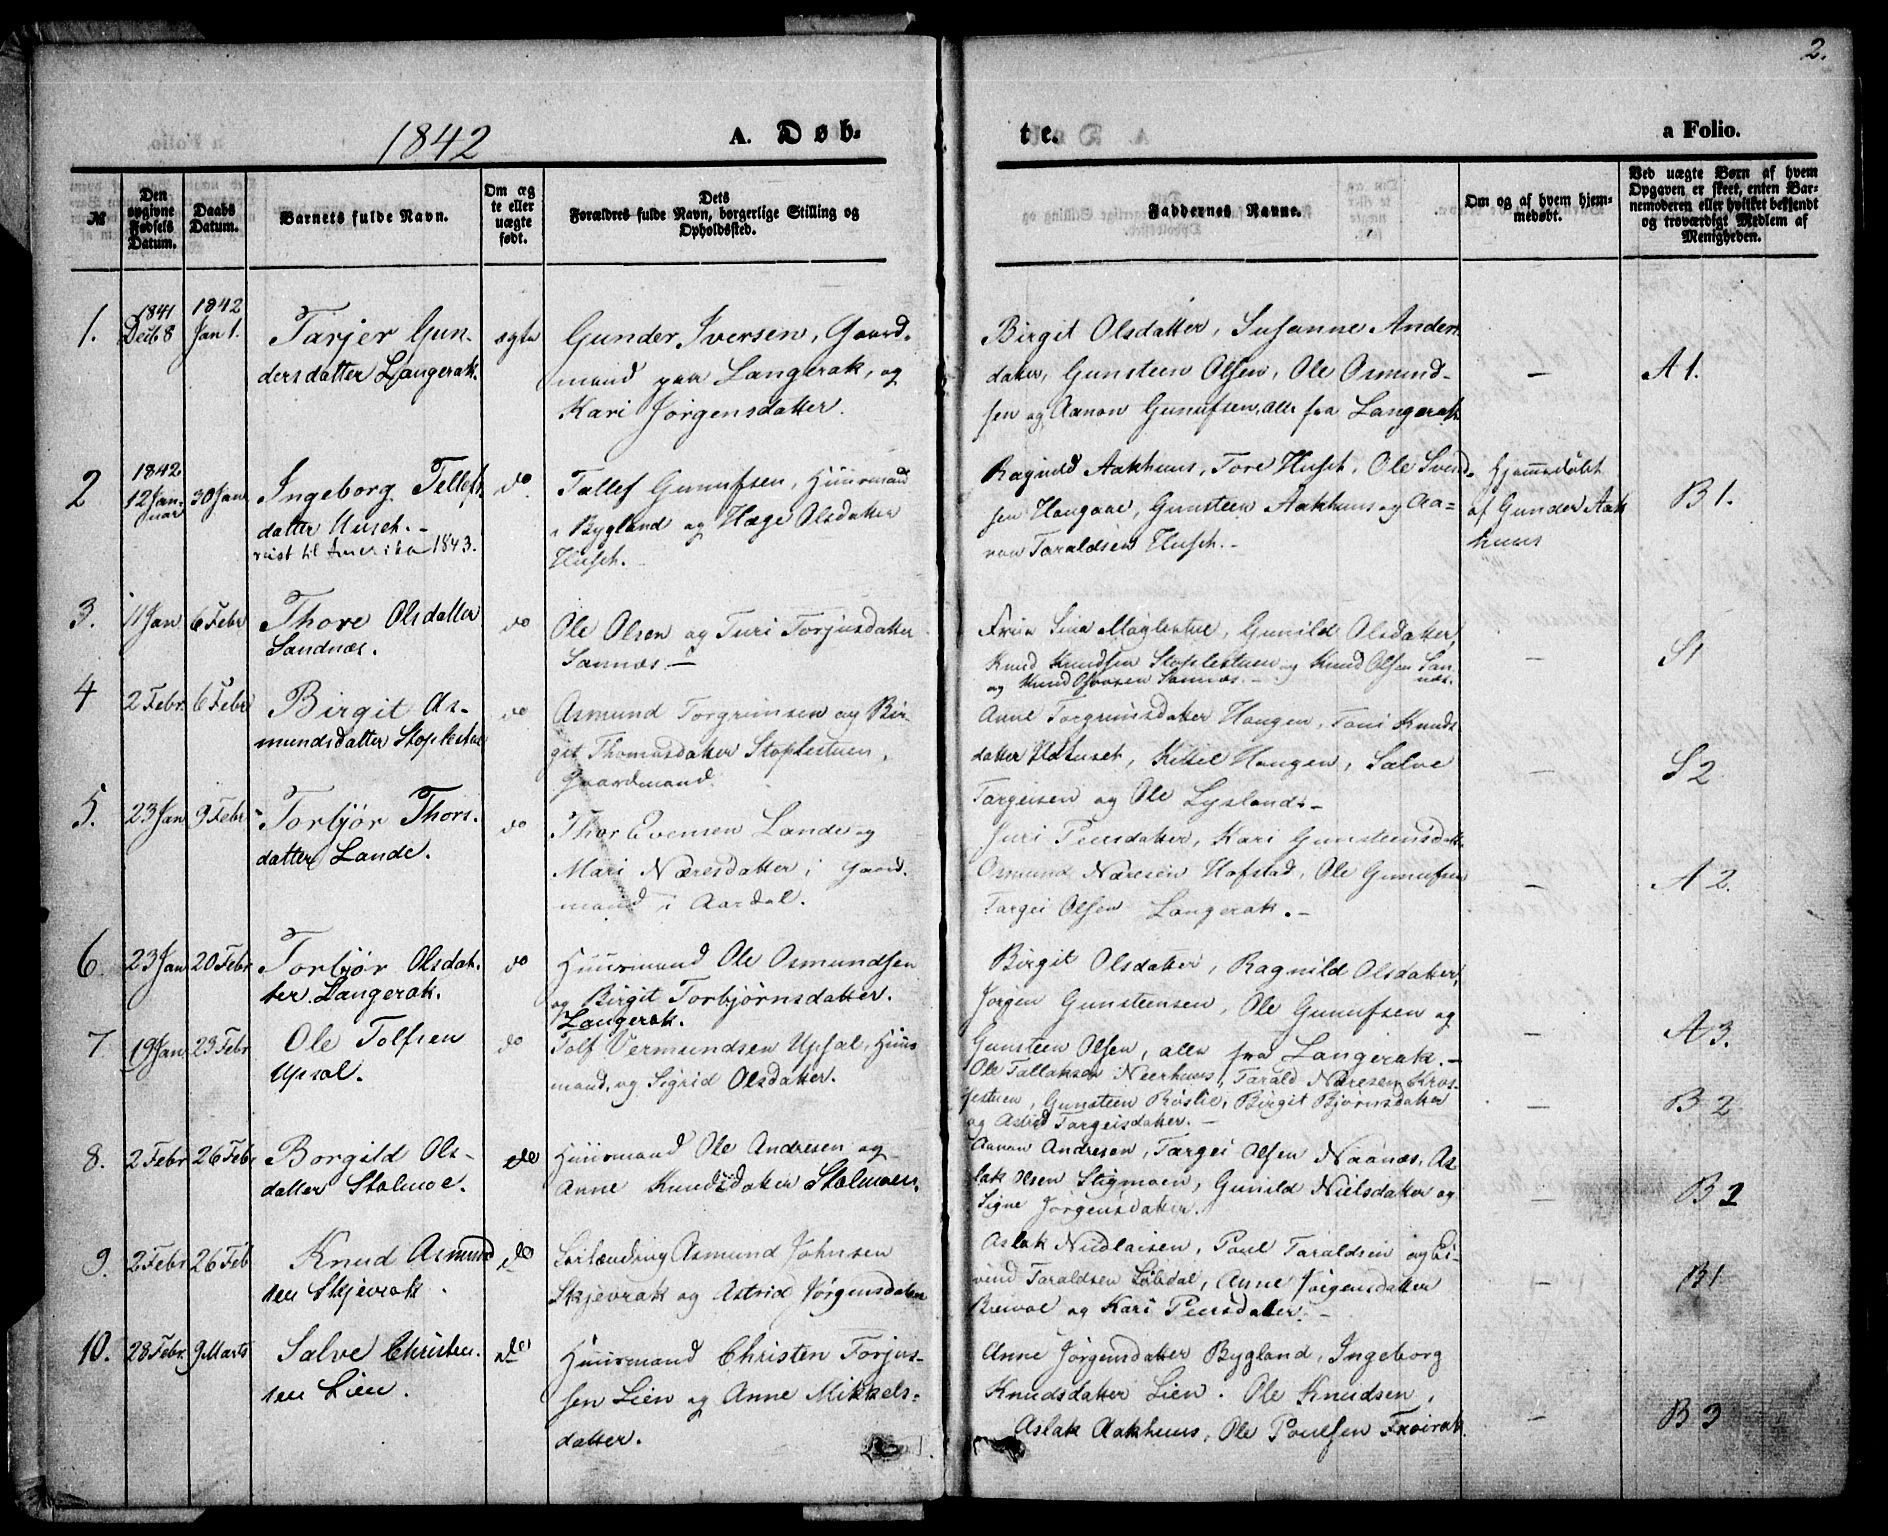 2.
1842
A. Døb-
te.
a Folio.
№
Den opgivne Fødsels Datum.
Daabs Datum.
Barnets fulde Navn.
Om ægte eller uægte født.
Dets Forældres fulde Navn, borgerlige Stilling og Opholdssted.
Faddernes Navne.
Om og af hvem hjemmedøbt.
Ved uægte Børn af hvem Opgaven er skeet, enten Barnemoderen eller hvilket bekjendt og troværdigt Medlem af Menigheden.
1. 1841 Decb 8 1842 Jan 1. Tarjer Gun-
dersdatter Langerak.
ægte
Gunder Iversen, Gaard-
mand paa Langerak, og
Kari Jørgensdatter.
Birgit Olsdatter, Susanne Anders
datter, Gunsteen Olsen, Ole Osmund-
sen og Aanon Gunufsen, alle fra Langerak
—
A 1.
2 1842 12 Januar 30 Jan Ingeborg Tellefs
datter Huset.—
reist til Amerika 1843.
do
Tallef Gunufsen, Huusmand
i Bygland og Hæge Olsdatter
Huset.—
Ragnild Aakhuus, Tore Huset, Ole Svend-
sen Haugaae, Gunsteen Aakhuus og Aa-
rou Taraldsen Huset.—
Hjemmedøbt
af Gunder Aak
huus
B 1.
3. 11 Jan 6 Febr Thore Olsdatter
Sandnæs.
do
Ole Olsen og Turi Torjusdatter
Sannæs —
Gunild Olsdatter,
Knud Knudsen Stoplestuen og Knud Olsen San-
næs.
—
S 1
4 2 Febr. 6 Febr Birgit As-
mundsdatter Stoplestue
do
Asmund Torgrimsen og Bir-
git Thomasdatter Stoplestuen,
Gaardmand.
Anne Torgrimsdatter Haugen, Toni Knuds
datter Uthuset, Kittel Haugen, Salve
Targeisen og Ole Lysland.—
—
S 2
5. 23 Jan 9 Febr Torbjør Thors-
datter Lande.
do
Thor Evensen Lande og
Mari Næresdatter, Gaard-
mand i Aardal.
Juri Peersdatter, Kari Gunsteensdatt.
Osmund Næresen Hofstad, Ole Gunufsen
Targei Olsen Langerak.—
—
A 2.
6. 23 Jan 20 Febr Torbjør Olsdat-
ter Langerak.
do
Huusmand Ole Osmundsen
og Birgit Torbjørnsdatter.
Langerak.
Birgit Olsdatter, Ragnild Olsdatter,
Jørgen Gunsteensen, Ole Gunufsen og
Gunsteen Olsen, alle fra Langerak.—
—
A 3.
7 19 Jan 23 Febr Ole Tolfsen
Upsal.
do
Tolf Vermundsen Upsal, Huus
mand, og Sigrid Olsdatter.
Ole Tallaksen Neerhuus, Tarald Næresen Kros-
stuen, Gunsteen Røslie, Birgit Bjørnsdatter
og Astrid Targeisdatter.—
—
B 2
8. 2 Febr 26 Febr Borgild Ols-
datter Stolmoe.
do
Huusmand Ole Andresen og
Anne Knudsdatter Stolmoen.
Aanon Andresen, Targei Olsen Naanæs, As
lak Olsen Stigmoen, Gunild Nielsdatter og
Signe Jørgensdatter.
—
B 2
9. 2 Febr 26 Feb Knud Asmund
sen Skjevrak.
do
Asmund Johnsen
Skjevrak og Astrid Jørgensdatter
Aslak Nicolaisen, Poul Taraldsen og Ei-
vind Taraldsen Løbdal, Anne Jørgensdatter
og Kari Peersdatter.—
—
B 1
10. 28 Febr. 9 Marts Salve Christen-
sen Lien.
do
Huusmand Christen Torjus-
sen Lien og Anne Mikkels-
datter.
Anne Jørgensdatter Bygland, Ingeborg
Knudsdatter Lien. Ole Knudsen,
Aslak Aakhuus, Ole Poulsen Frøirak.
—
B 3